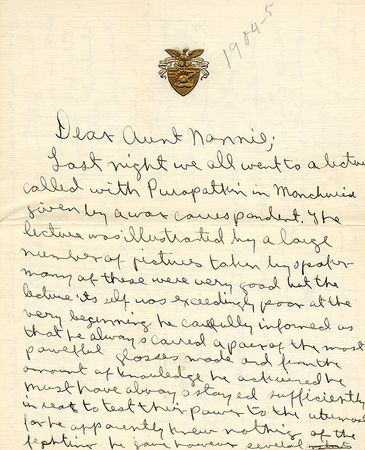 1904-5
Dear Aunt Nannie;
Last night we all went to a lecture
called with Puropatkin in Manchuria
given by a war correspondent. The
lecture was illustrated by a large
number of pictures taken by
many of these were very good but the
lecture its self was exceedingly poor at the
very beginning he carefully informed us
that he always carried a pair of the most
powerful glasses made and from the
amount of knowledge he acquired he
must have always stayed sufficiently
in rear to test their power to the utermost
for he apparently knew nothing of the
fighting he gave however several